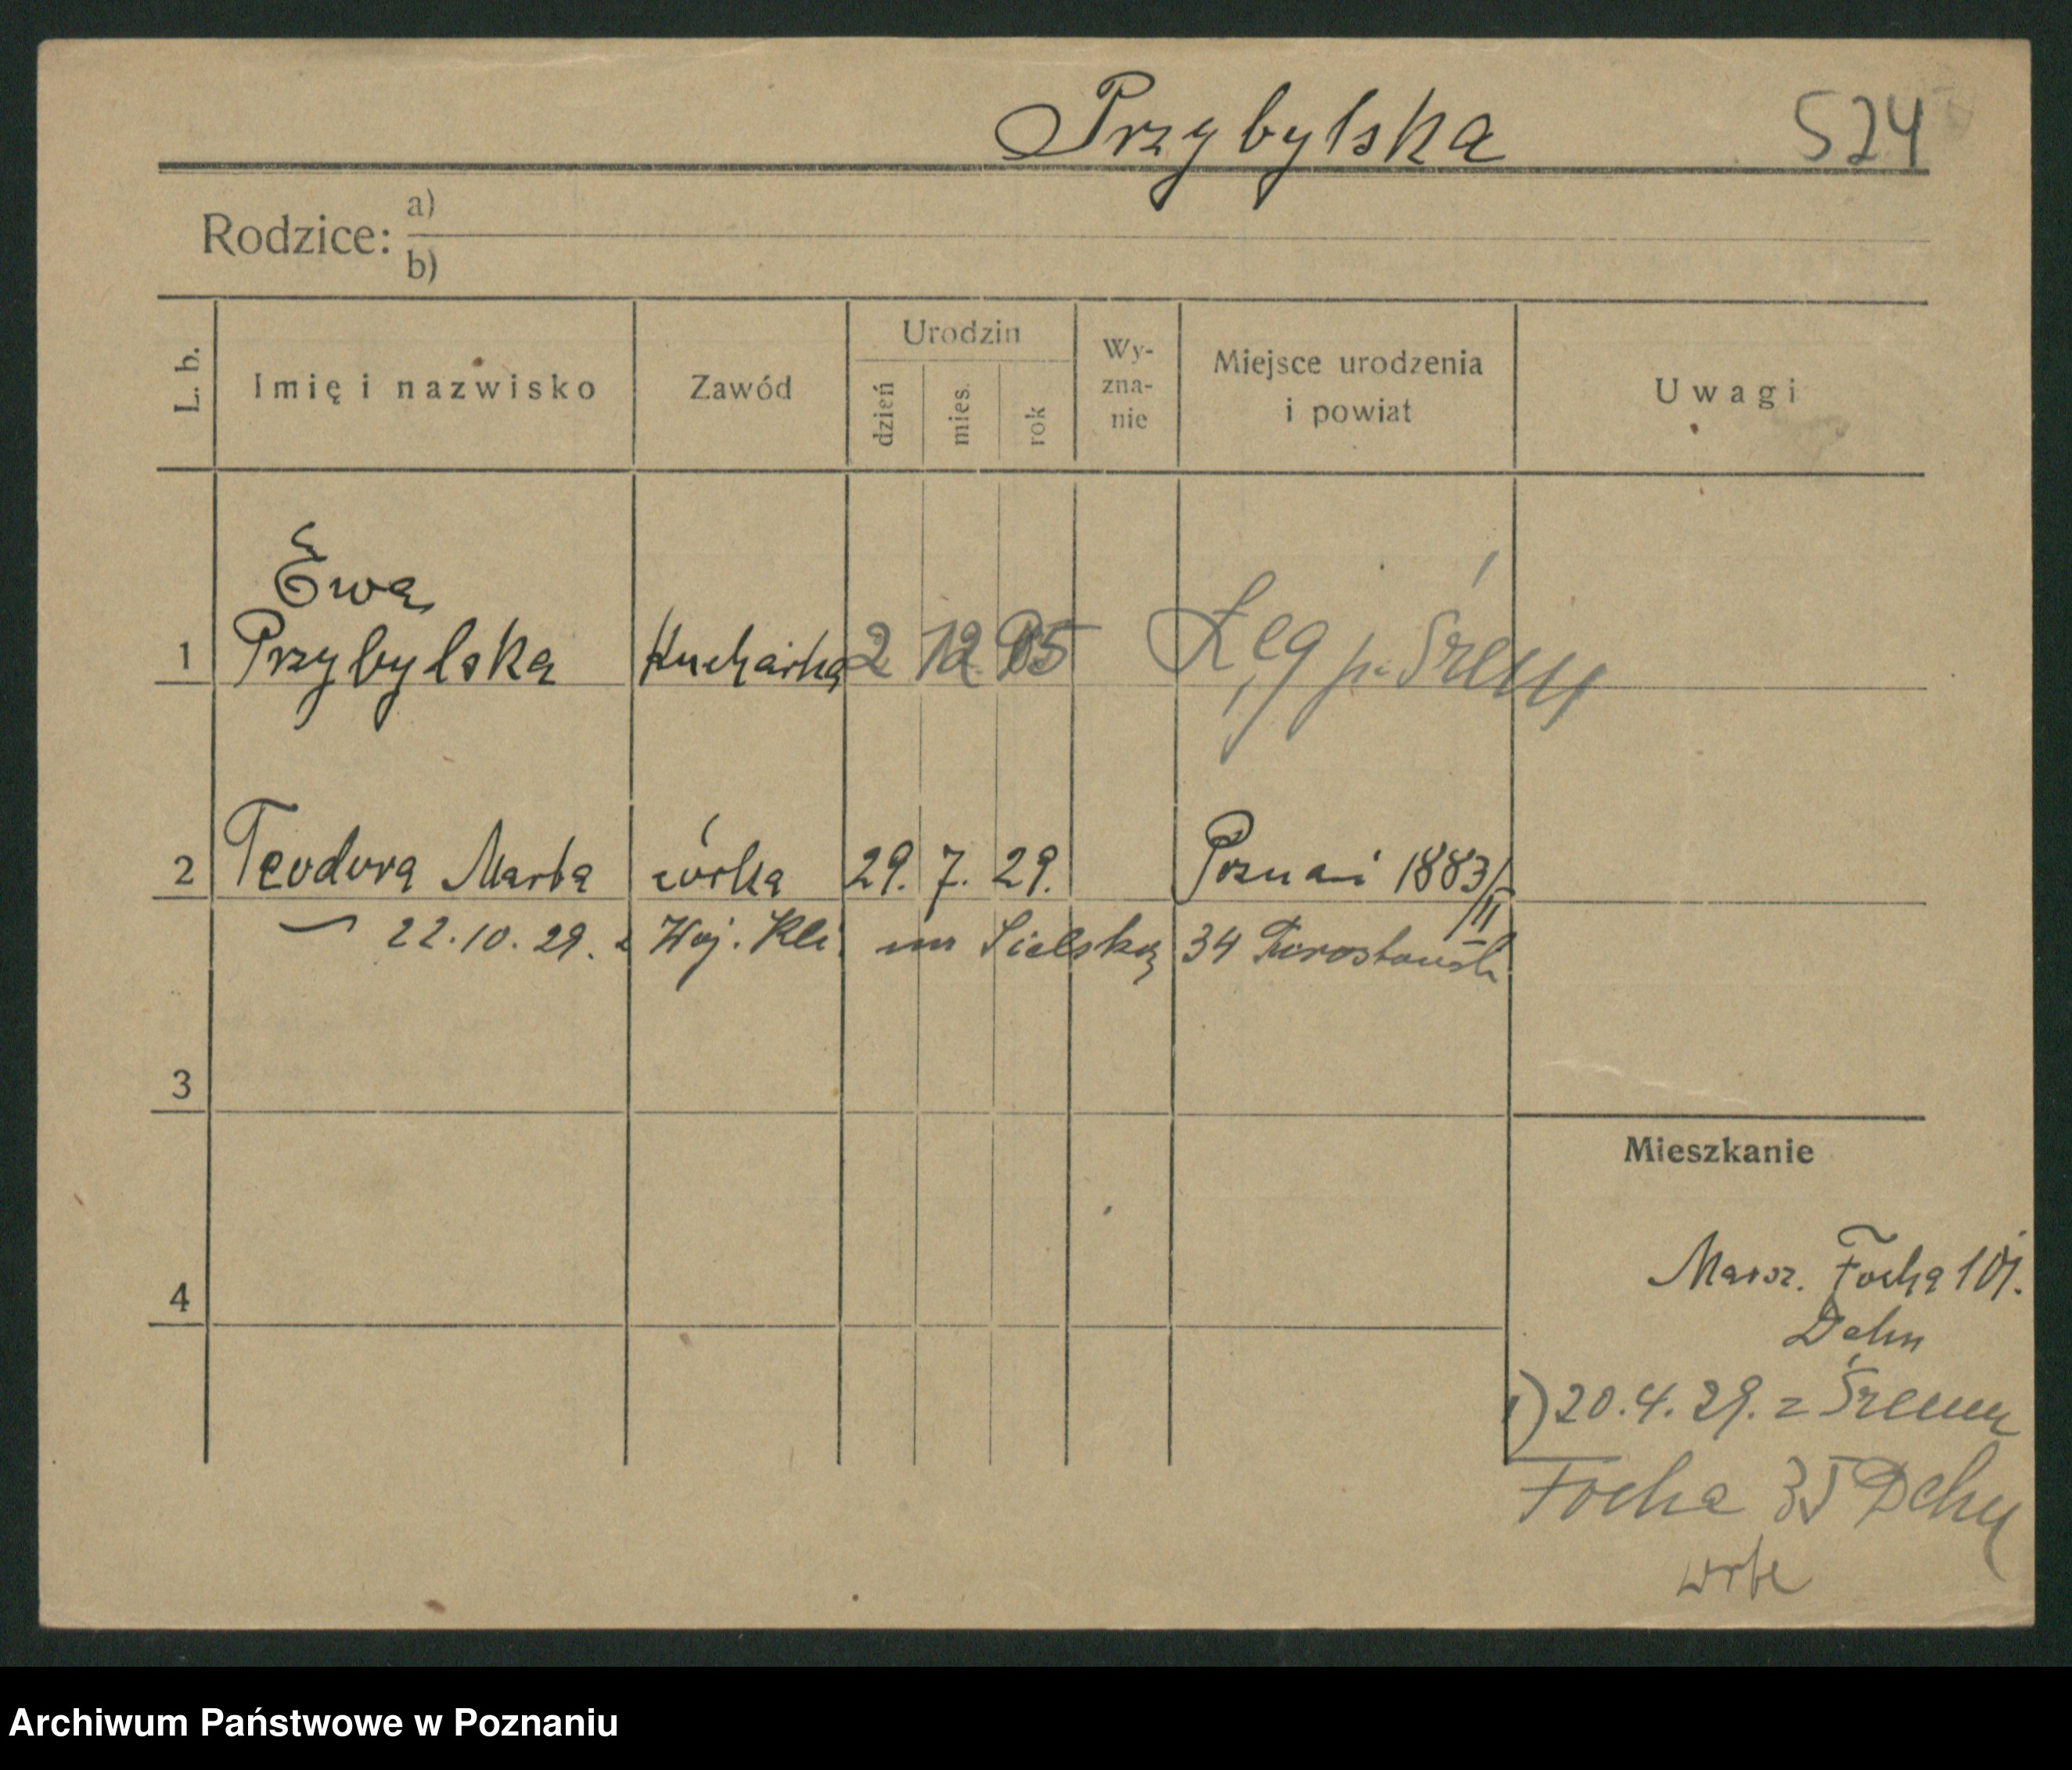 Przybylska 524
Rodzice: a)
b)
L. b. Imię i nazwisko Zawód Urodzin dzień mies. rok Wy-zna-nie Miejsce urodzenia i powiat Uwagi
Ewa
1 Przybylska Kucharka 2 12 05 Łęg p. Śrem
2 Teodora Marta córka 29. 7. 29. Poznań 1883/II
22.10.29. z Woj. Kli. na Sielską 34
3
Mieszkanie
4
Marsz. Focha 101.
Dehn
1) 20.4.29. z Śremu
Focha 35 Dehn
Archiwum Państwowe w Poznaniu